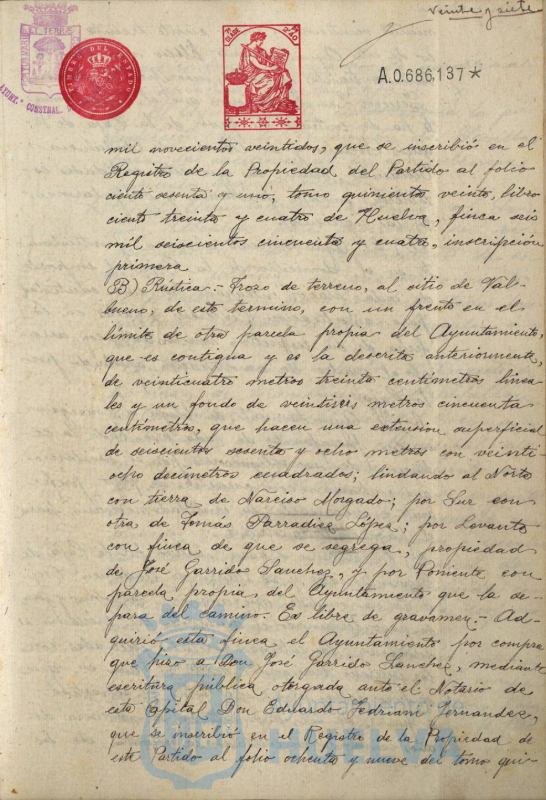 veinte y siete
CLASE 8ª
TIMBRE DEL ESTADO
AYUNT.º CONSTNAL.
A.0.686.137*
mil novecientos veintidos, que se inscribió en el
Registro de la Propiedad del Partido al folio
ciento sesenta y uno, tomo quinientos veinte, libro
ciento treinta y cuatro de Huelva, finca seis
mil seiscientos cincuenta y cuatro, inscripción
primera
B) Rústica.- Trozo de terreno, al sitio de Val-
bueno, de este termino, con un frente en el
límite de otra parcela propia del Ayuntamiento,
que es contigua y es la descrita anteriormente,
de veinticuatro metros treinta centímetros linea-
les y un fondo de veintiseis metros cincuenta
centímetros, que hacen una extension superficial
de seiscientos sesenta y ocho metros con veinti-
ocho decímetros cuadrados; lindando al Norte
con tierra de Narciso Morgado; por Sur con
otra de Tomás Parradice López; por Levante
con finca de que se segrega, propiedad
de José Garrido Sanchez, y por Poniente con
parcela propia del Ayuntamiento que la se-
para del camino.- Es libre de gravamen.- Ad-
quirió esta finca el Ayuntamiento por compra
que hizo a Don José Garrido Sanchez, mediante
escritura pública otorgada ante el Notario de
esta Capital Don Eduardo Fedriani Fernandez,
que se inscribió en el Registro de la Propiedad de
este Partido al folio ochenta y nueve del tomo qui-
HUELVA